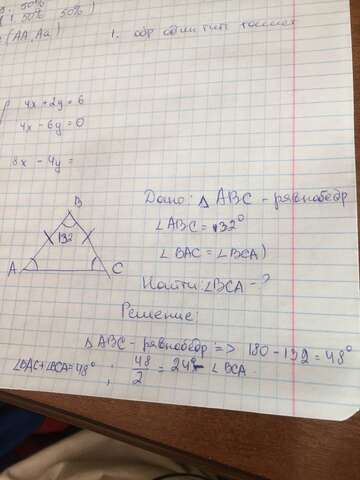 50%
50% 50%)
(AA, Aa)
1.
4x + 2y = 6
4x - 6y = 0
8x - 4y =
B
132
A
C
Дано: △ ABC - равнобедр
∠ABC = 132°
∠BAC = ∠BCA)
Найти ∠BCA - ?
Решение:
△ABC - равнобедр => 180 - 132 = 48°
∠BAC + ∠BCA = 48° ; 48/2 = 24° - ∠BCA.